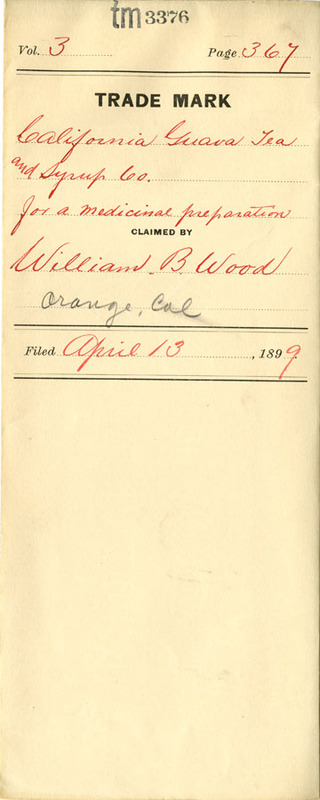 tm 3376
Vol. 3 Page 367
TRADE MARK
California Guava Tea
and Syrup Co.
for a medicinal preparation
CLAIMED BY
William B. Wood
Orange, Cal
Filed April 13, 1899.